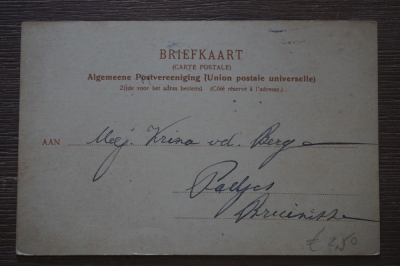 BRIEFKAART
(CARTE POSTALE)
Algemeene Postvereeniging (Union postale universelle)
Zijde voor het adres bestemd. (Côté réservé à l'adresse.)
AAN Mej. Krina vd. Berge
Padjes
Bruinisse
£ 2,50